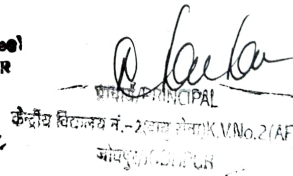 R
प्राचार्य/PRINCIPAL
केन्द्रीय विद्यालय नं.-2(वायु सेना)K.V.No.2(AF
जोधपुर/JODHPUR